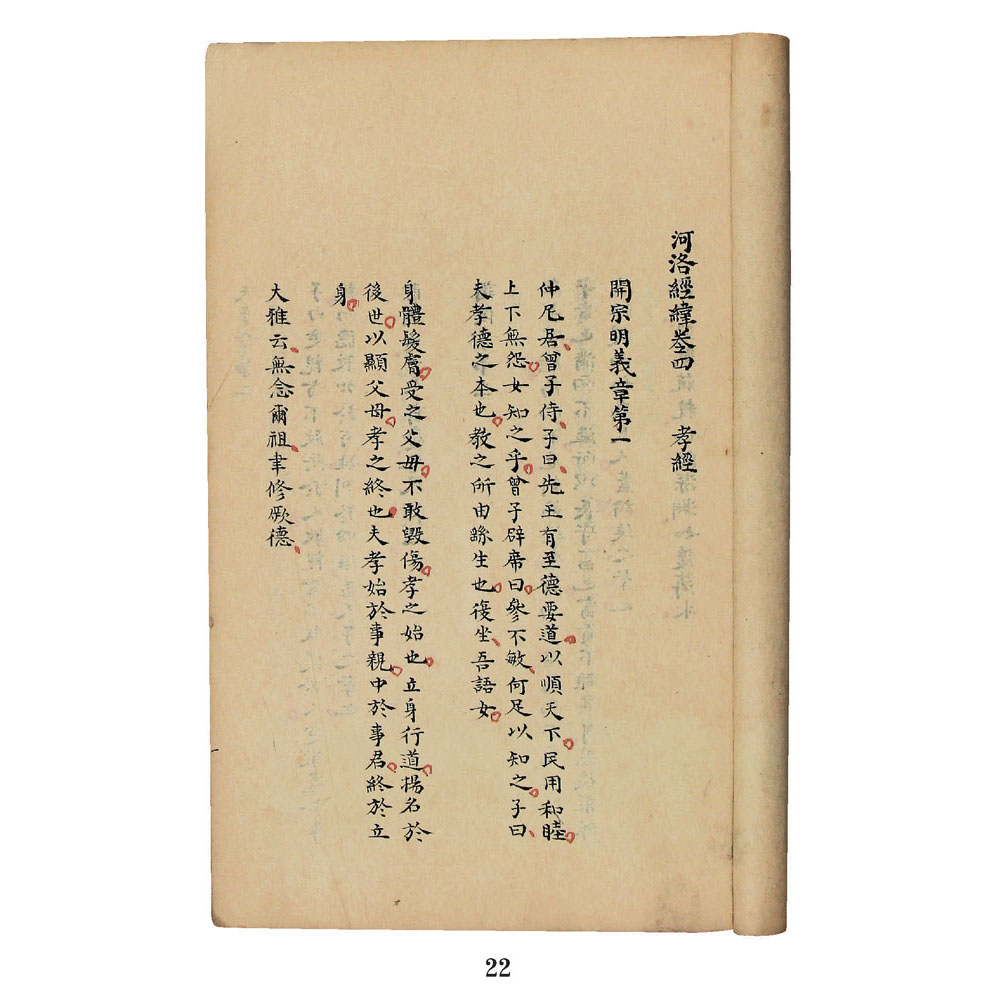 河洛經緯卷四　孝經
開宗明義章第一
仲尼居曾子侍、子曰先王有至德要道、以順天下民用和睦。
上下無怨。女知之乎。曾子辟席曰、參不敏、何足以知之。子曰
夫孝德之本也。教之所由繇生也。復坐、吾語女。
身體髮膚。受之父母。不敢毀傷。孝之始也。立身行道。揚名於
後世以顯父母。孝之終也。夫孝始於事親。中於事君。終於立
身。
大雅云、無念爾祖、聿修厥德、
22